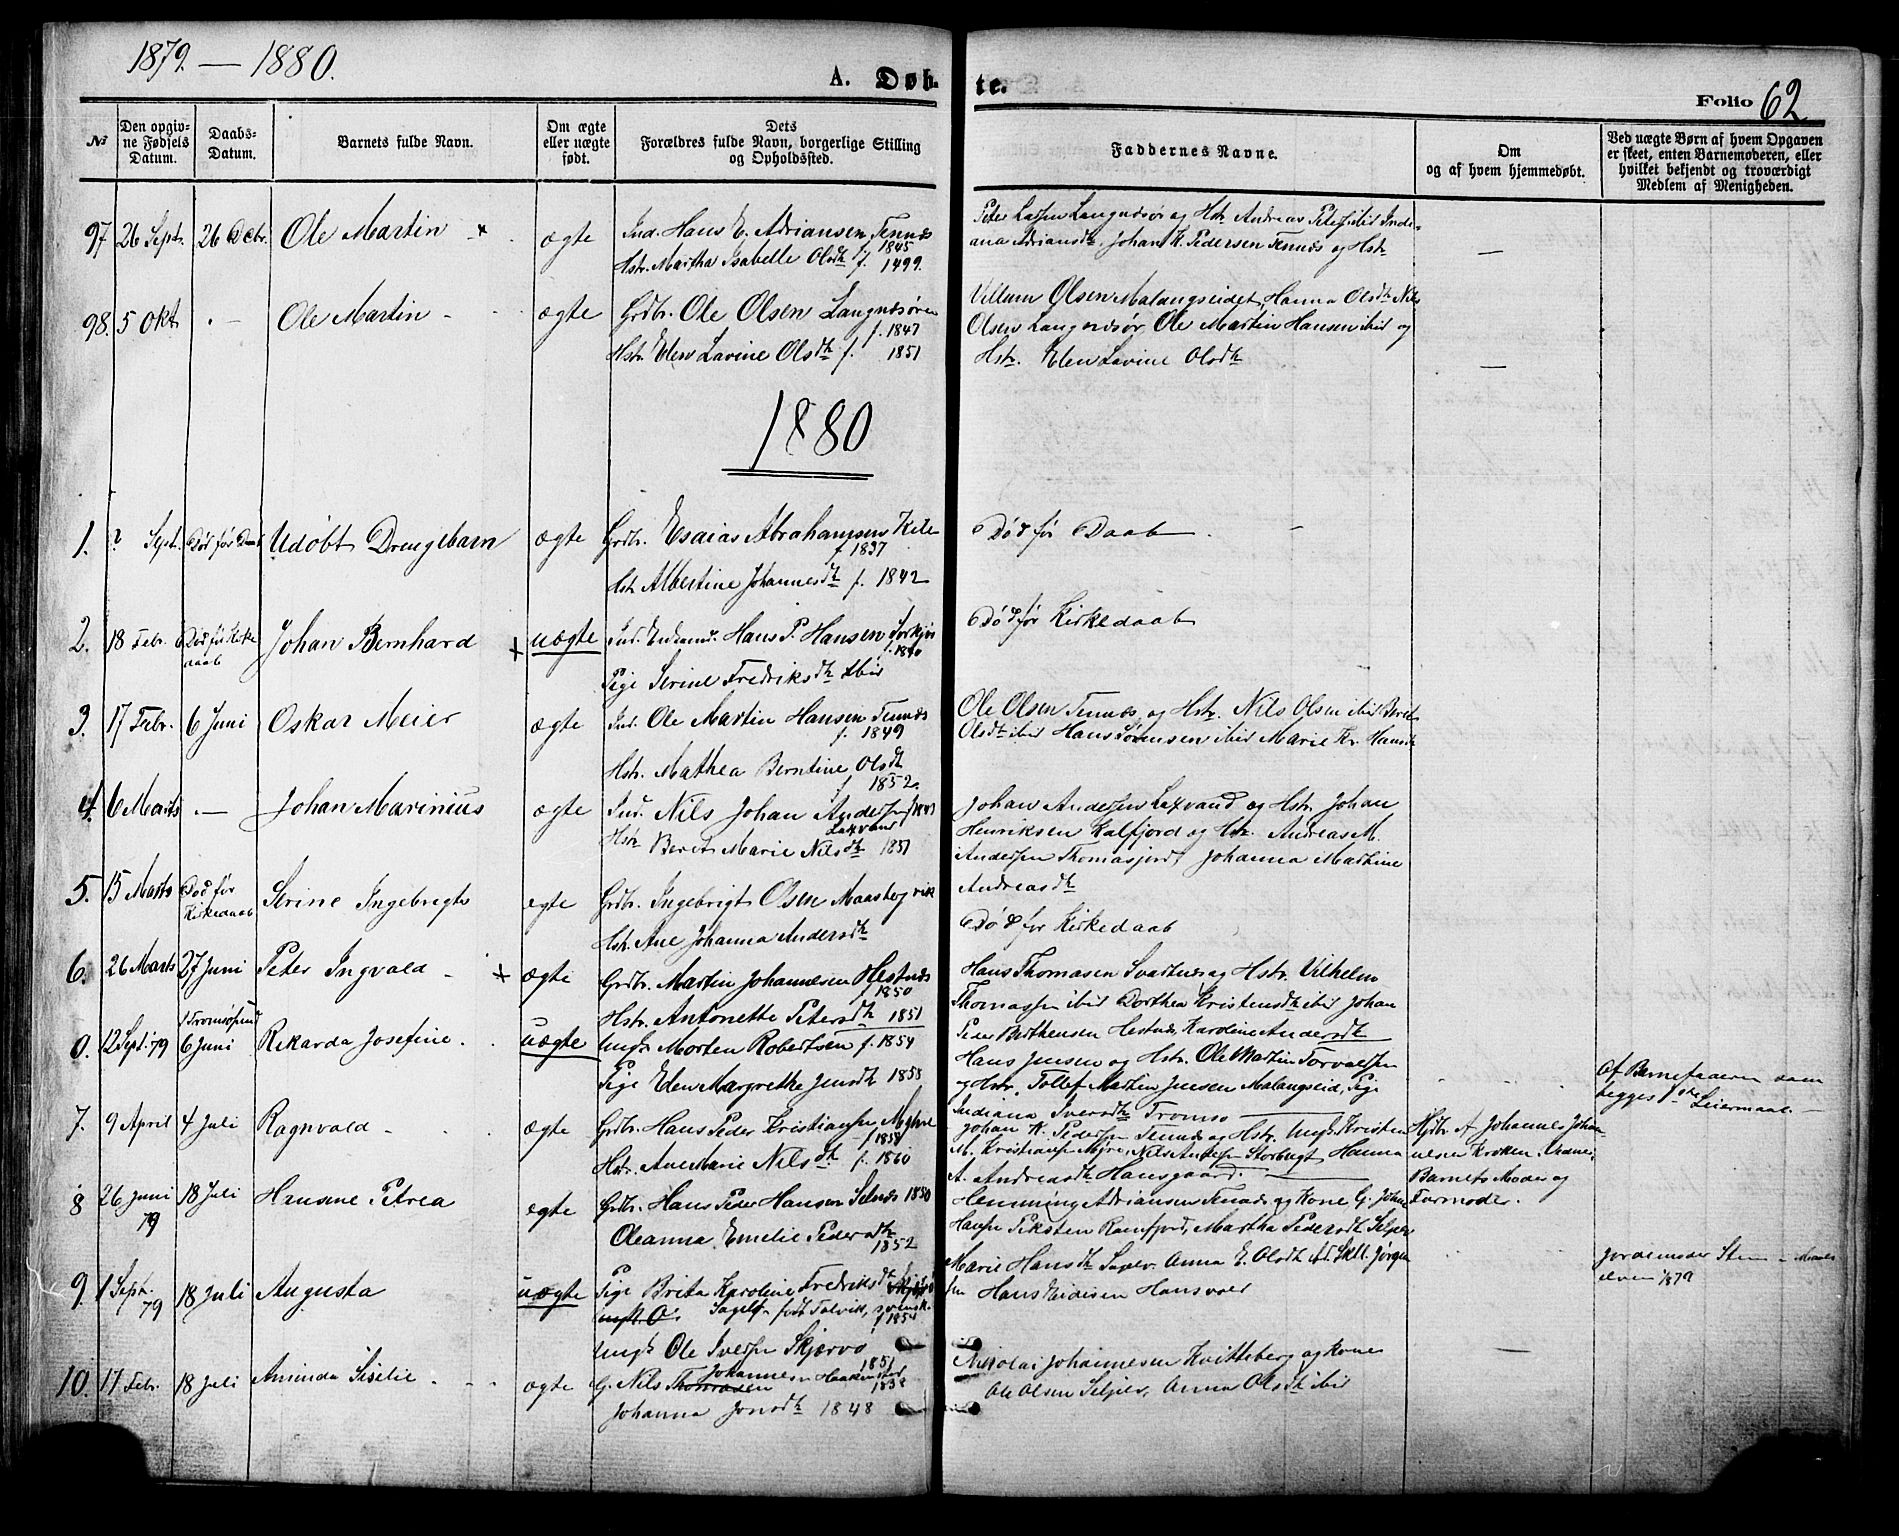 1879. — 1880.
A. Døb-
te.
Folio 62
№
Den opgiv-
ne Fødsels
Datum.
Daabs-
Datum.
Barnets fulde Navn.
Om ægte
eller uægte
født.
Dets
Forældres fulde Navn, borgerlige Stilling
og Opholdssted.
Faddernes Navne.
Om
og af hvem hjemmedøbt.
Ved uægte Børn af hvem Opgaven
er skeet, enten Barnemoderen, eller
hvilket bekjendt og troværdigt
Medlem af Menigheden.
97 26 Sept. 26 Decbr. Ole Martin × ægte
Ind. Hans E. Adriansen Tennes
f. 1845
Hstr. Martha Isabelle Olsdtr f. 1499.
Peter Larsen Langnesør og Hstr Andreas Peters ibid Indi-
ana Adriansdtr, Johan K. Pedersen Tennes og Hstr
—
98. 5 Okt . — Ole Martin - ægte
Grdbr. Ole Olsen Langnesøren
f. 1847
Hstr. Elen Lavine Olsdtr f. 1851
Villum Olsen Malangseidet, Hanna Olsdtr Nils
Olsen Langnesør, Ole Martin Hansen ibid og
Hstr. Elen Lavine Olsdtr
—
1880
1. ? Sept. Død før Daab Udøbt Drengebarn ægte
Grdbr. Esaias Abrahamsen Kile
f. 1837
Hstr Albertine Johannesdtr f. 1842
Død før Daab.
2. 18 Febr. Død før Kirke
daab
Johan Bernhard × uægte
Ind. Enkemd. Hans P. Hansen
f. 1840
Pige Serine Fredriksdtr ibid
Død før Kirkedaab
3. 17 Febr. 6 Juni Oskar Meier ægte
Ind. Ole Martin Hansen Tennes
f. 1849
Hstr. Mathea Berntine Olsdtr
f 1852.
Ole Olsen Tennes og Hstr. Nils Olsen ibid Berit
Olsdtr ibid Hans Sørensen ibid Marie Kr. Hansdtr
4. 6 Marts . — Johan Marinius ægte
Ind. Nils Johan Andersen
Laxvand
Hstr Berit Marie Nilsdtr 1851
Johan Andersen Laxvand og Hstr. Johan
Henriksen Kalfjord og Hstr. Andreas M.
Andersen Thomasjord, Johanna Martine
Andreasdtr
5. 15 Marts Død før
Kirkedaab
Serine Ingebrigts egte
Grdbr. Ingebrigt Olsen Maasbergvik
Hstr. Ane Johanna Andersdtr
Død før Kirkedaab
6. 26 Marts 27 Juni
i Tromsøsund
Peter Ingvald - × ægte
Grdbr. Martin Johannesen Hestnes
1850
Hstr. Antonette Petersdtr 1851
Hans Thomasen Svartnes og Hstr. Vilhelm
Thomassen ibid Dorthea Kristensdtr ibid Johan
Peder Berthensen Hestnes Karoline Andersdtr
0. 12 Sept. 79 6 Juni Rikarda Josefine. uægte
Ungk. Morten Robertsen f. 1854
Pige Elen Margrethe Jensdtr 1858
Hans Jensen og Hstr. Ole Martin Torvaldsen
og Hstr. Tollef Martin Jensen Malangseid, Pige
Indiana Iversdtr Tromsø
Af Barnefaderen som
begges 1ste Leiermaal. —
7. 9 April 4 Juli Ragnvald - ægte
Grdbr. Hans Peder Kristiansen
f 1858
Hstr. Ane Marie Nilsdtr f. 1860
Johan K. Pedersen Tennes og Hstr. Ungk. Kristen
M. Kristiansen Myre, Nils Andersen Storbugt Hanna
A. Andreasdtr Hansgaard. —
Hjdbr. A Johannes Johan-
nesen Kroken.
Barnets Moder og
Farmoder.
8 26 Juni
79
18 Juli Hansine Petrea egte
Grdbr. Hans Peder Hansen Selnes 1850
Oleanna Emelie Pedersdtr
1852
Henning Adriansen Tennes og Kone, G. Johan
Hansen Piksten Ramfjord, Martha Pedersdtr Selnes
9. 1 Sept.
79
18 Juli Augusta uægte
Pige Brita Karoline Fredriksdtr
Sagelv født Talvik, svensk.
f 1854
Ungk Ole Iversen Skjervø
1851
Marie Hansdtr Sagelv. Anna E. Olsdtr Ad. Skll. Jørgen
sen Hans Eidisen Hansvoer
Jordemoder Steen - Maals
elven 1879
10. 17 Febr. 18 Juli Aminda Siselie . - . ægte
G. Nils Thomasen Johannesen
1838
Johanna Jonsdtr 1848
Nikolai Johannesen Kvitteberg og Kone
Ole Olsen Selnes, Anna Olsdtr ibid
—